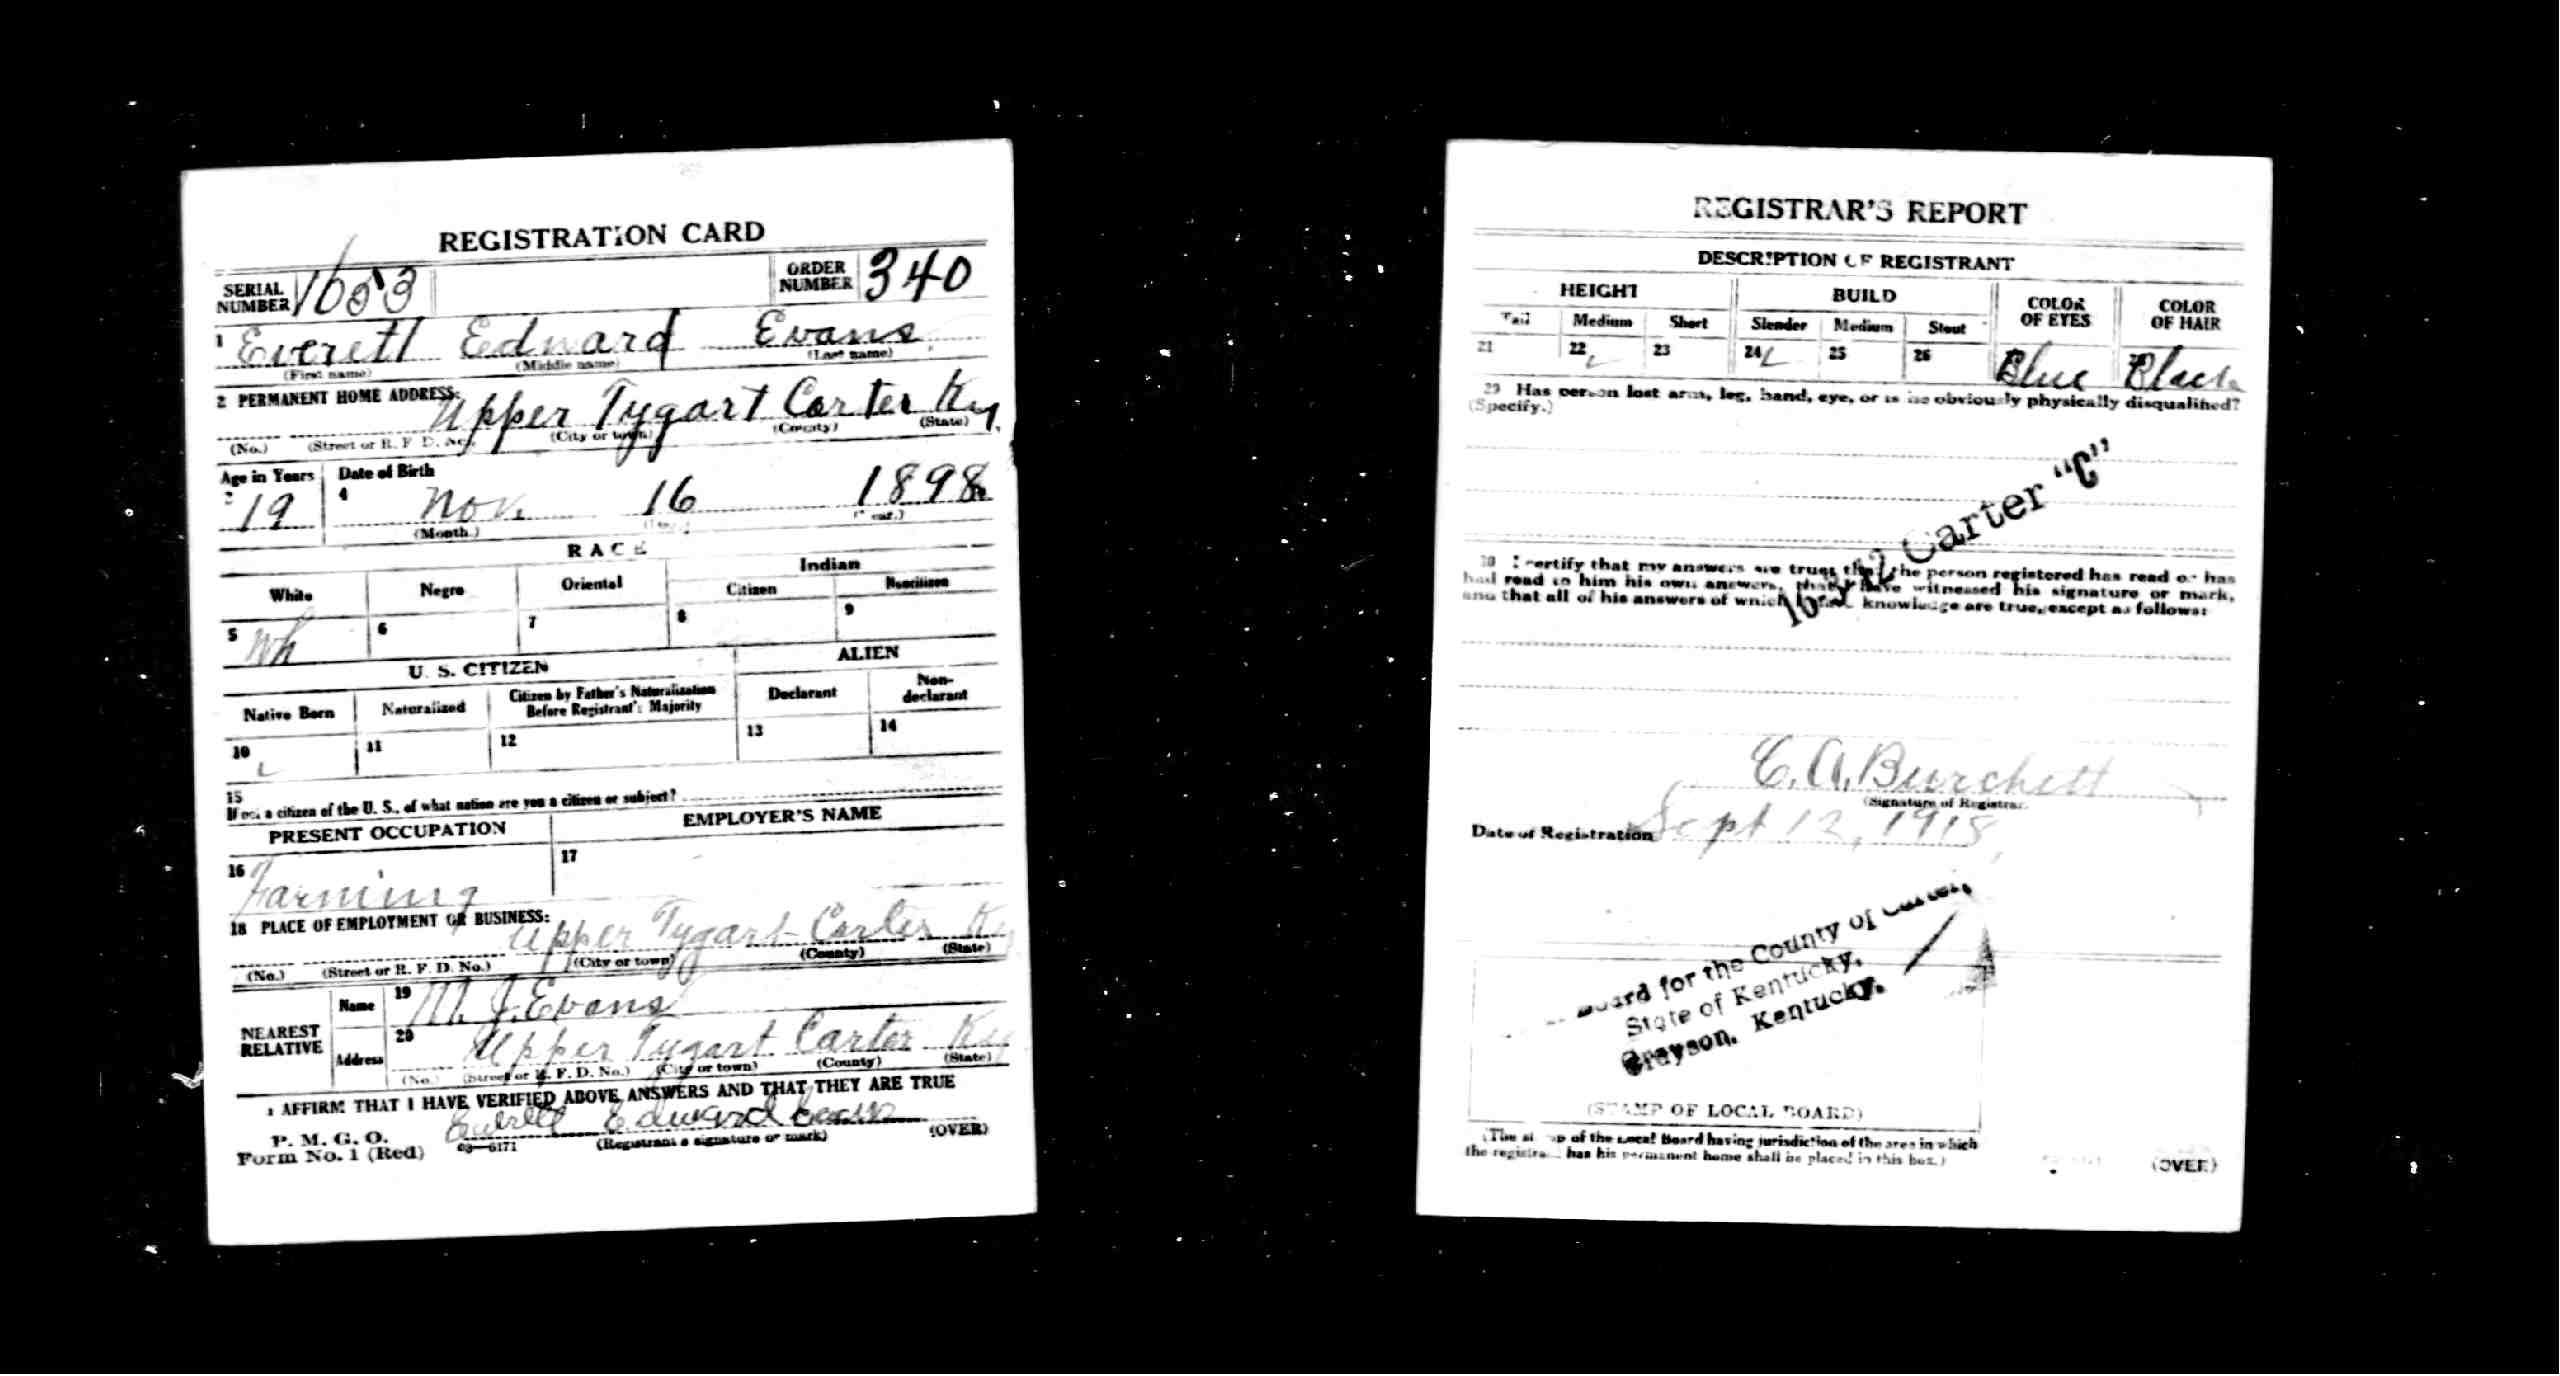 REGISTRATION CARD
SERIAL NUMBER 1653 ORDER NUMBER 340
1 Everett Edward Evans
(First name) (Middle name) (Last name)
2 PERMANENT HOME ADDRESS:
Upper Tygart Carter Ky.
(No.) (Street or R. F. D. No.) (City or town) (County) (State)
Age in Years Date of Birth
19 4 Nov. 16 1898
(Month.) (Year.)
RACE
White Negro Oriental Indian
Citizen Noncitizen
5 Wh 6 7 8 9
U. S. CITIZEN ALIEN
Native Born Naturalized Citizen by Father's Naturalization Before Registrant's Majority Declarant Non-declarant
10 11 12 13 14
15
If not a citizen of the U. S., of what nation are you a citizen or subject?
PRESENT OCCUPATION EMPLOYER'S NAME
16 Farming 17
18 PLACE OF EMPLOYMENT OR BUSINESS:
Upper Tygart Carter Ky
(No.) (Street or R. F. D. No.) (City or town) (County) (State)
NEAREST RELATIVE Name 19 M. J. Evans
Address 20 Upper Tygart Carter Ky
(No.) (Street or R. F. D. No.) (City or town) (County) (State)
I AFFIRM THAT I HAVE VERIFIED ABOVE ANSWERS AND THAT THEY ARE TRUE
Everett Edward Evans
P. M. G. O.
Form No. 1 (Red) 03—6171 (Registrant's signature or mark) (OVER)
REGISTRAR'S REPORT
DESCRIPTION OF REGISTRANT
HEIGHT BUILD COLOR OF EYES COLOR OF HAIR
Tall Medium Short Slender Medium Stout
21 22 23 24 25 26 Blue Black
29 Has person lost arm, leg, hand, eye, or is he obviously physically disqualified?
(Specify.)
Carter "C"
30 I certify that my answers are true; that the person registered has read or has
had read to him his own answers, that I have witnessed his signature or mark,
and that all of his answers of which I have knowledge are true, except as follows:
C. A. Burchett
(Signature of Registrar.
Date of Registration Sept 12, 1918
Board for the County of Carter,
State of Kentucky,
Grayson, Kentucky.
(STAMP OF LOCAL BOARD)
(The stamp of the Local Board having jurisdiction of the area in which
the registrant has his permanent home shall be placed in this box.)
(OVER)